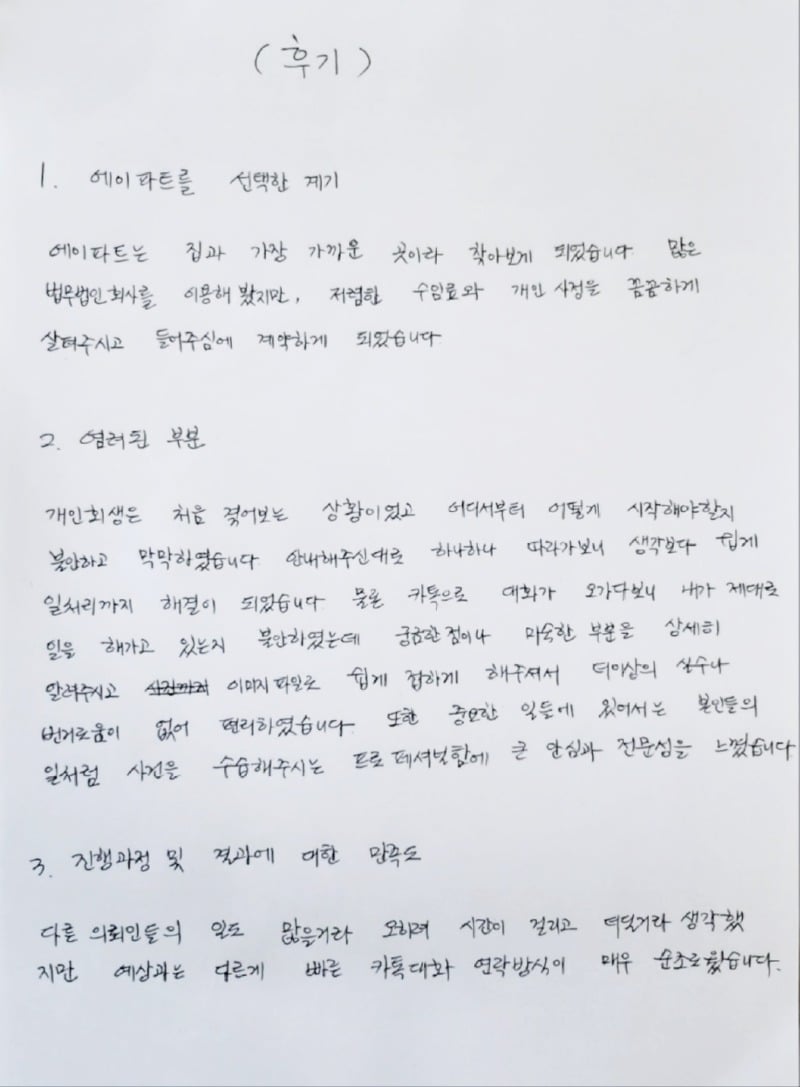 (후기)
1. 에이파트를 선택한 계기
에이파트는 집과 가장 가까운 곳이라 찾아보게 되었습니다. 많은
법무법인회사를 이용해 봤지만, 저렴한 수임료와 개인 사정을 꼼꼼하게
살펴주시고 들어주심에 계약하게 되었습니다.
2. 염려된 부분
개인회생은 처음 겪어보는 상황이었고 어디서부터 어떻게 시작해야할지
불안하고 막막하였습니다. 안내해주신대로 하나하나 따라가보니 생각보다 쉽게
일처리까지 해결이 되었습니다. 물론 카톡으로 대화가 오가다보니 내가 제대로
일을 해가고 있는지 불안하였는데 궁금한점이나 미숙한 부분을 상세히
알려주시고 이미지파일로 쉽게 접하게 해주셔서 더이상의 실수나
번거로움이 없어 편리하였습니다. 또한 중요한 일들에 있어서는 본인들의
일처럼 사건을 수습해주시는 프로페셔널함에 큰 안심과 전문성을 느꼈습니다.
3. 진행과정 및 결과에 대한 만족도
다른 의뢰인들의 일도 많을거라 오히려 시간이 걸리고 더딜거라 생각했
지만 예상과는 다르게 빠른 카톡대화 연락방식이 매우 순조로웠습니다.